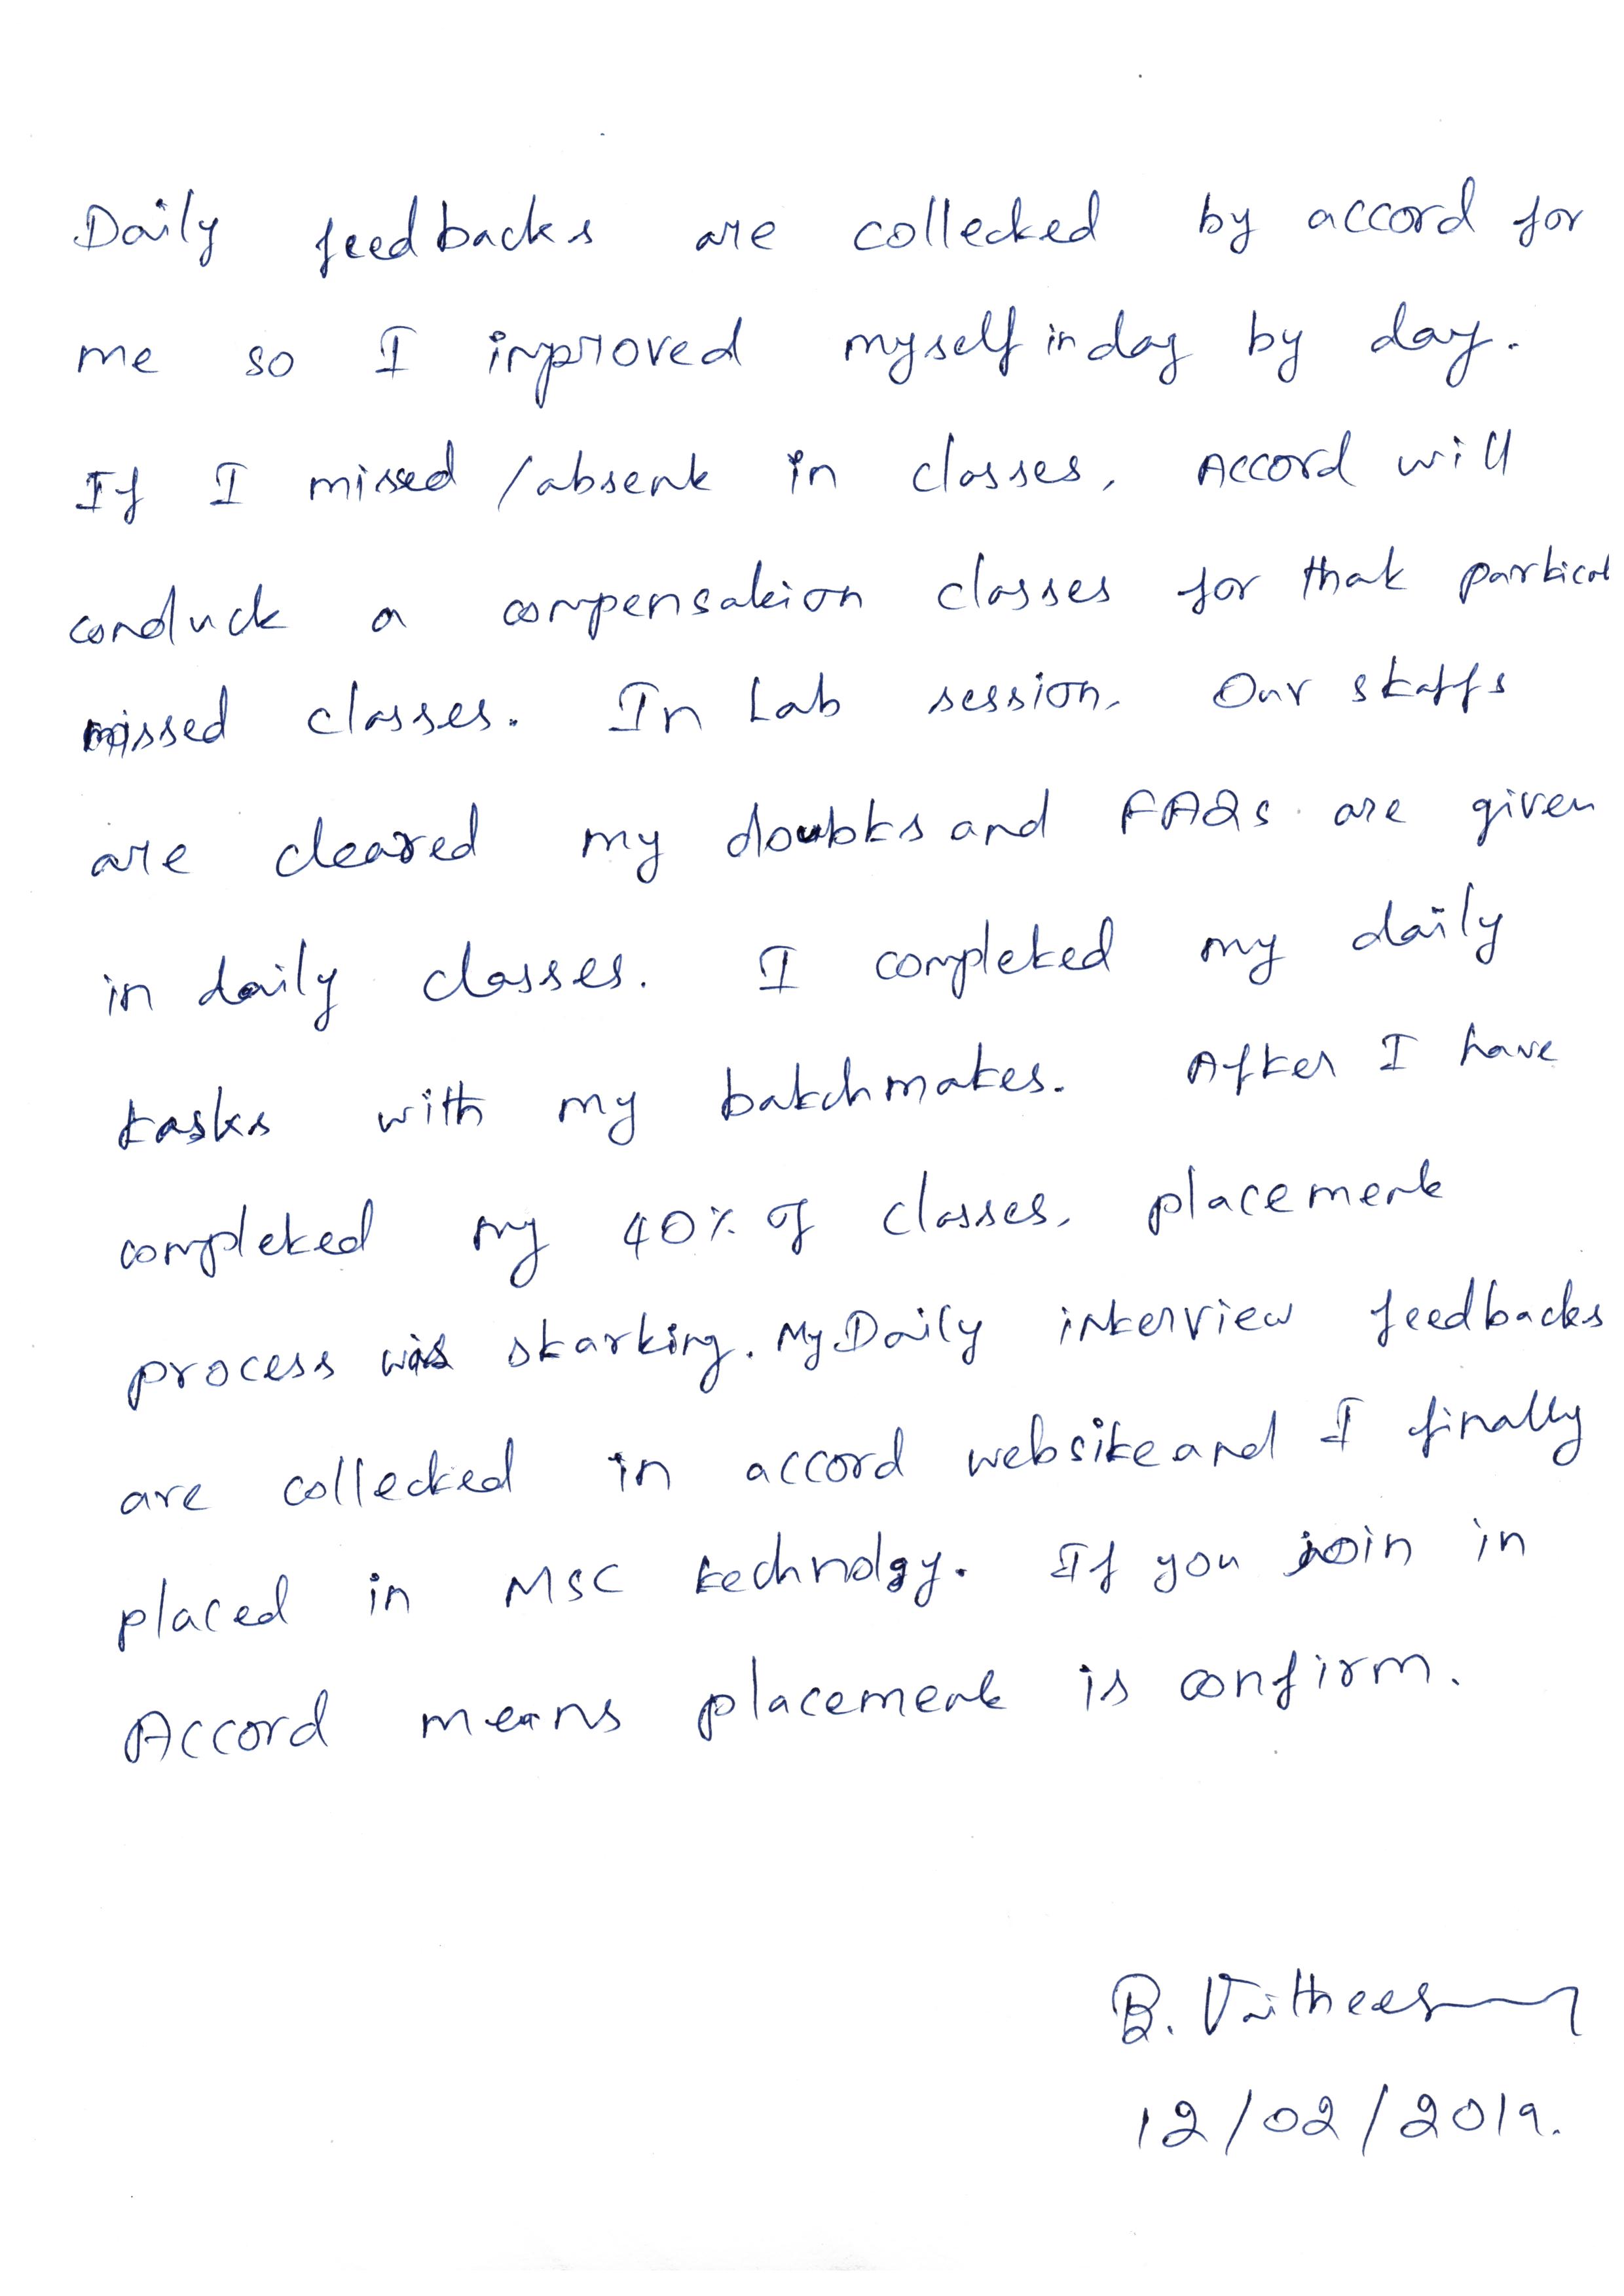 Daily feedbacks are collected by accord for
me so I improved myself in day by day.
If I missed /absent in classes, Accord will
conduct a compensation classes for that particul
missed classes. In Lab session, Our staffs
are cleared my doubts and FAQs are given
in daily classes. I completed my daily
tasks with my batchmates. After I have
completed my 40% of classes, placement
process was starting. My Daily interview feedbacks
are collected in accord website and I finally
placed in MSC technology. If you join in
Accord means placement is confirm.
B.
12/02/2019.